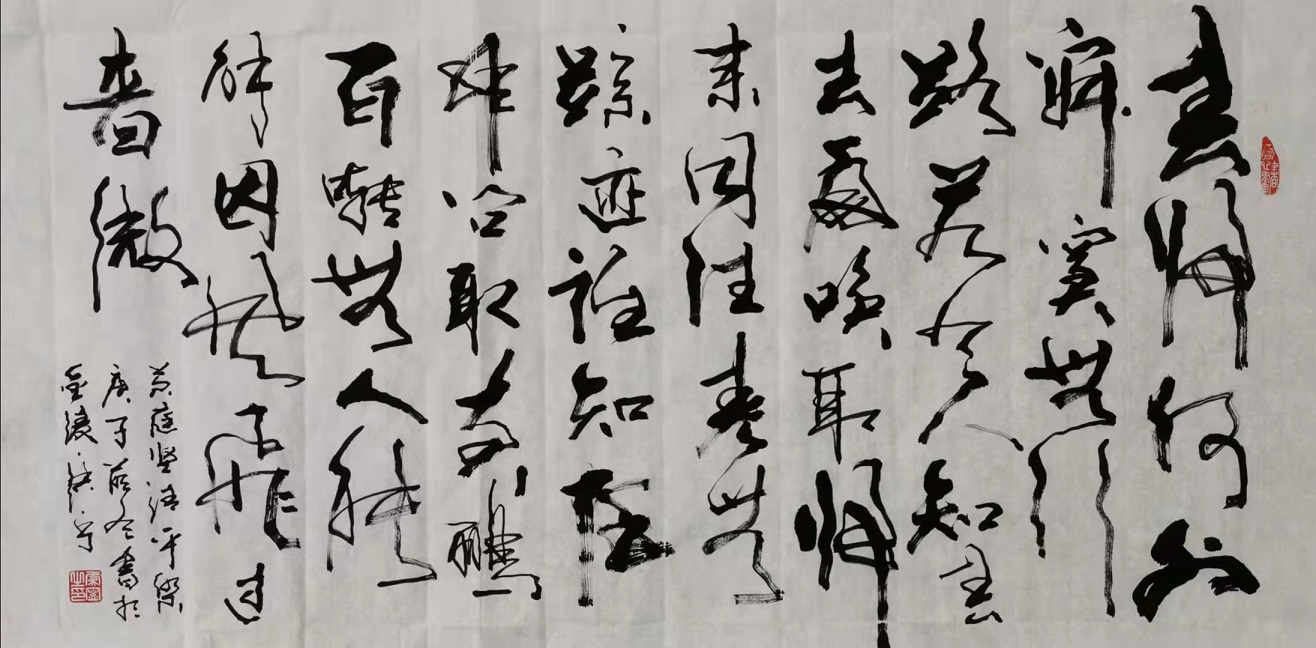 春归何处
寂寞無行
路若有人知春
去處唤取归
来同住春無
踪迹谁知除
非问取黄鹂
百啭無人能
解因風飛过
蔷薇
黄庭坚清平樂
庚子冬書於
金陵